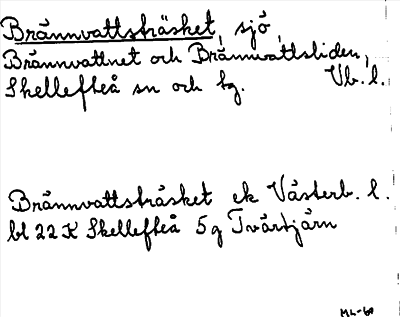 Brännvattsträsket, sjö,
Brännvattnet och Brännvattsliden,
Skellefteå sn och tg. Vb. l.
Brännvattsträsket ek Västerb. l.
bl 22 K Skellefteå 5g Tvärtjärn
ML-60